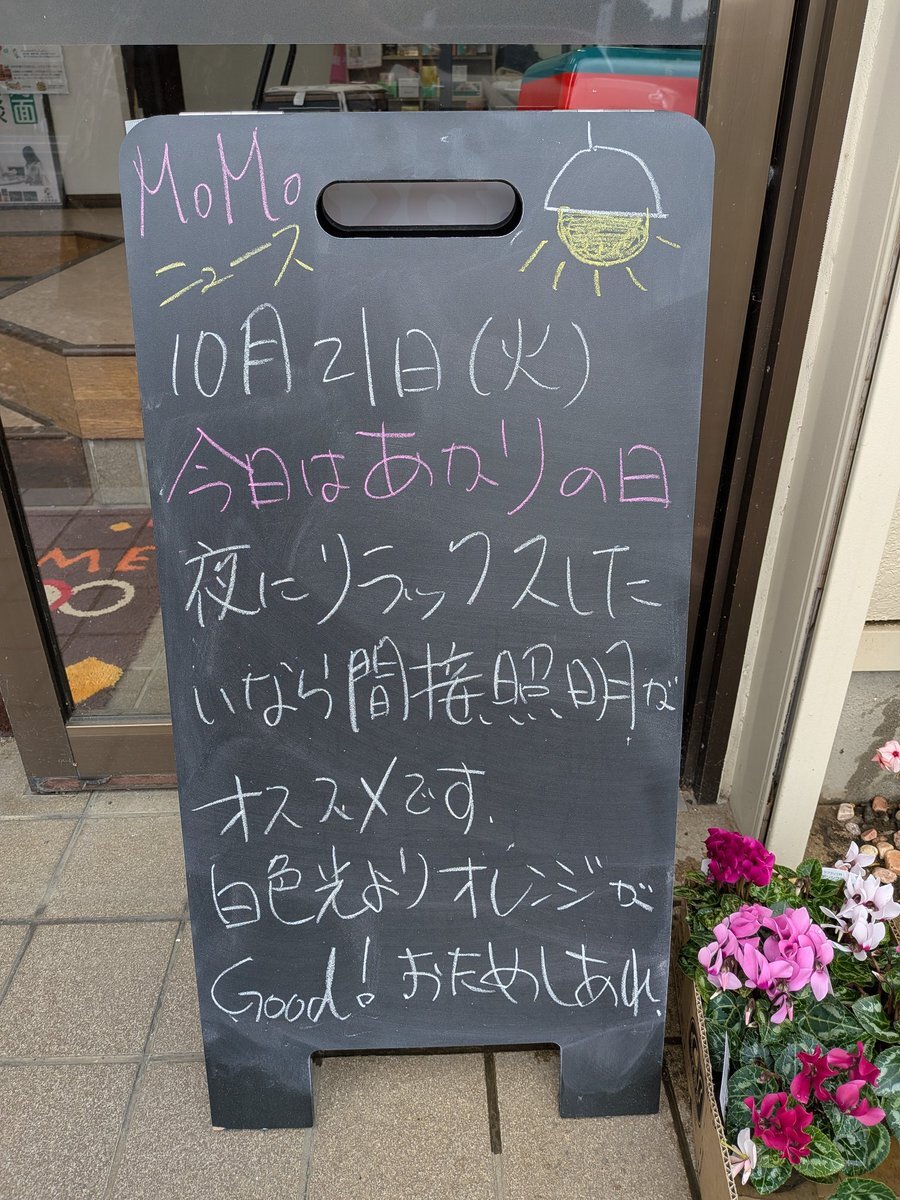 MoMo
ニュース
10月21日(火)
今日はあかりの日
夜にリラックスした
いなら間接照明が
オススメです.
白色光よりオレンジが
Good! おためしあれ.
ME
面